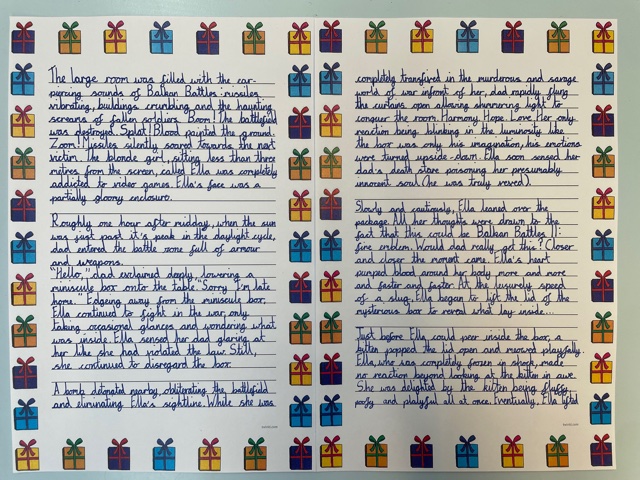 The large room was filled with the ear-
piercing sounds of Balkan Battles: missiles
vibrating, buildings crumbling and the haunting
screams of fallen soldiers. Boom! The battlefield
was destroyed. Splat! Blood painted the ground.
Zoom! Missiles silently soared towards the next
victim. The blonde girl, sitting less than three
metres from the screen, called Ella was completely
addicted to video games. Ella's face was a
partially gloomy enclosure.
Roughly one hour after midday, when the sun
was just past it's peak in the daylight cycle,
dad entered the battle zone full of armour
and weapons.
"Hello," dad exclaimed deeply, lowering a
minuscule box onto the table. "Sorry I'm late
home." Edging away from the minuscule box,
Ella continued to fight in the war, only
taking occasional glances and wondering what
was inside. Ella sensed her dad glaring at
her like she had violated the law. Still,
she continued to disregard the box.
A bomb detonated nearby, obliterating the battlefield
and eliminating Ella's sightline. While she was
twinkl.com
completely transfixed in the murderous and savage
world of war infront of her, dad rapidly flung
the curtains open allowing shimmering light to
conquer the room. Harmony. Hope. Love. Her only
reaction being blinking in the luminosity like
the box was only his imagination, his emotions
were turned upside-down. Ella soon sensed her
dad's death stare poisoning her presumably
innocent soul (he was truly vexed).
Slowly and cautiously, Ella leaned over the
package. All her thoughts were drawn to the
fact that this could be Balkan Battles II:
fire emblem. Would dad really get this? Closer
and closer the moment came. Ella's heart
pumped blood around her body more and more
and faster and faster. At the leisurely speed
of a slug, Ella began to lift the lid of the
mysterious box to reveal what lay inside...
Just before Ella could peer inside the box, a
kitten popped the lid open and meowed playfully.
Ella, who was completely frozen in shock, made
no reaction beyond looking at the kitten in awe.
She was delighted by the kitten being fluffy,
and playful all at once. Eventually, Ella lifted
twinkl.com